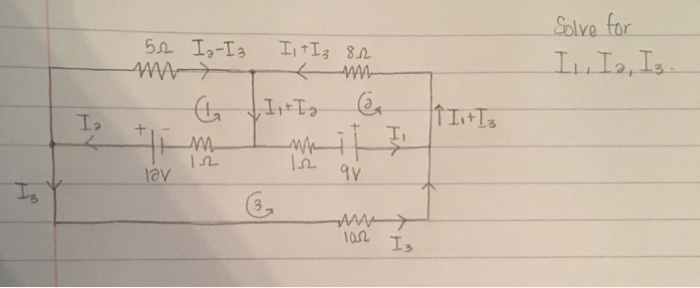 Solve for
I₁, I₂, I₃.
5Ω I₂-I₃ I₁+I₃ 8Ω
1 I₁+I₂ 2 ↑I₁+I₃
I₂ + - - + I₁
1Ω 1Ω
12V 9V
I₃ 3
10Ω I₃